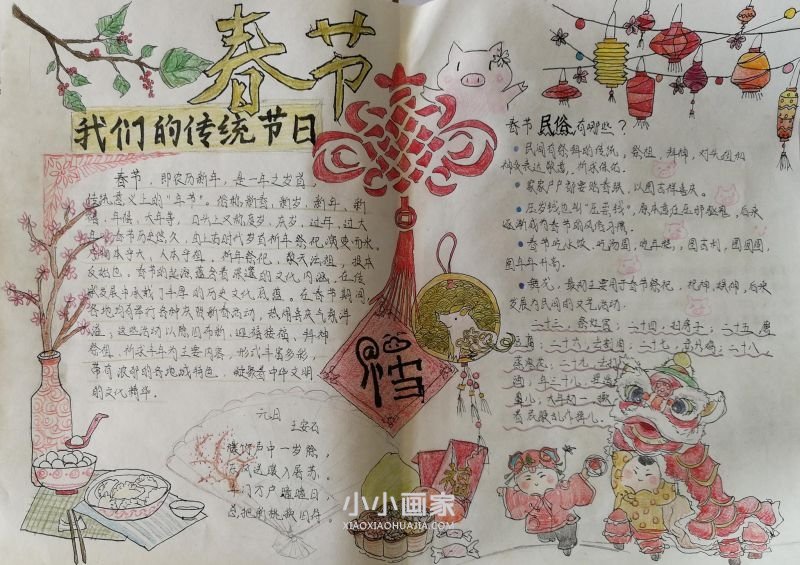 春节
我们的传统节日
春节，即农历新年，是一年之岁首，
传统意义上的“年节”。俗称新春，新岁，新年，新
禧，年禧，大年等，口头上又称度岁，庆岁，过年，过大
年。春节历史悠久，由上古时代岁首祈年祭祀演变而来。
万物本乎天，人本乎祖，祈年祭祀，敬天法祖，报本
反始也。春节的起源蕴含着深邃的文化内涵，在传
承发展中承载了丰厚的历史文化底蕴。在春节期间，
全国各地均有举行各种庆贺新春活动，热闹喜庆气氛洋
溢，这些活动以除旧布新，迎禧接福，拜神
祭祖，祈求丰年为主要内容，形式丰富多彩，
带有浓郁的各地域特色，凝聚着中华文明
的文化精华。
元日
王安石
爆竹声中一岁除，
春风送暖入屠苏。
千门万户曈曈日，
总把新桃换旧符。
福
春节民俗有哪些？
民间有祭拜的传统，祭祖，拜神，对先祖和
神灵表达敬意，祈求保佑。
家家户户都要贴春联，以图吉祥喜庆。
压岁钱也叫“压祟钱”，原本意在压邪驱祟，后来
逐渐成为春节的风俗习惯。
春节吃水饺，吃汤圆，吃年糕，图吉利，团团圆，
图年年升高。
舞龙，最初主要用于春节祭祀，祀神，娱神，后来
发展为民间的文艺活动。
二十三，祭灶官；二十四，扫房子；二十五，磨
豆腐；二十六，去割肉；二十七，
二十八
福
小小画家
XIAOXIAOHUAJIA.COM